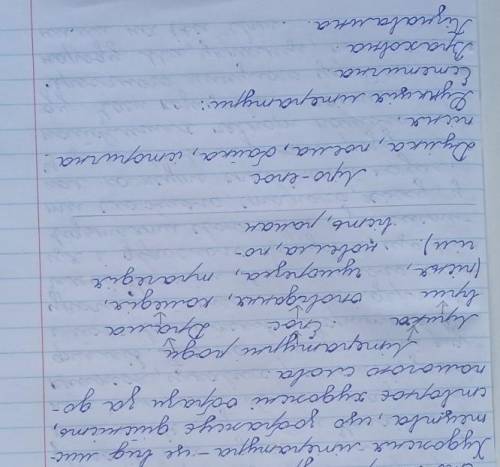 Художня література – це вид мис-
тецтва, що зображує дійсність,
створює художні образи за до-
помогою слова
Літературні роди
Лірика Епос Драма
вірш оповідання, комедія,
(пісня, гумореска, трагедія
новела, по-
вість, роман
Ліро-епос
Думка, поема, байка, історична
пісня.
Функція літератури:
Естетична
Виховна
Пізнавальна.